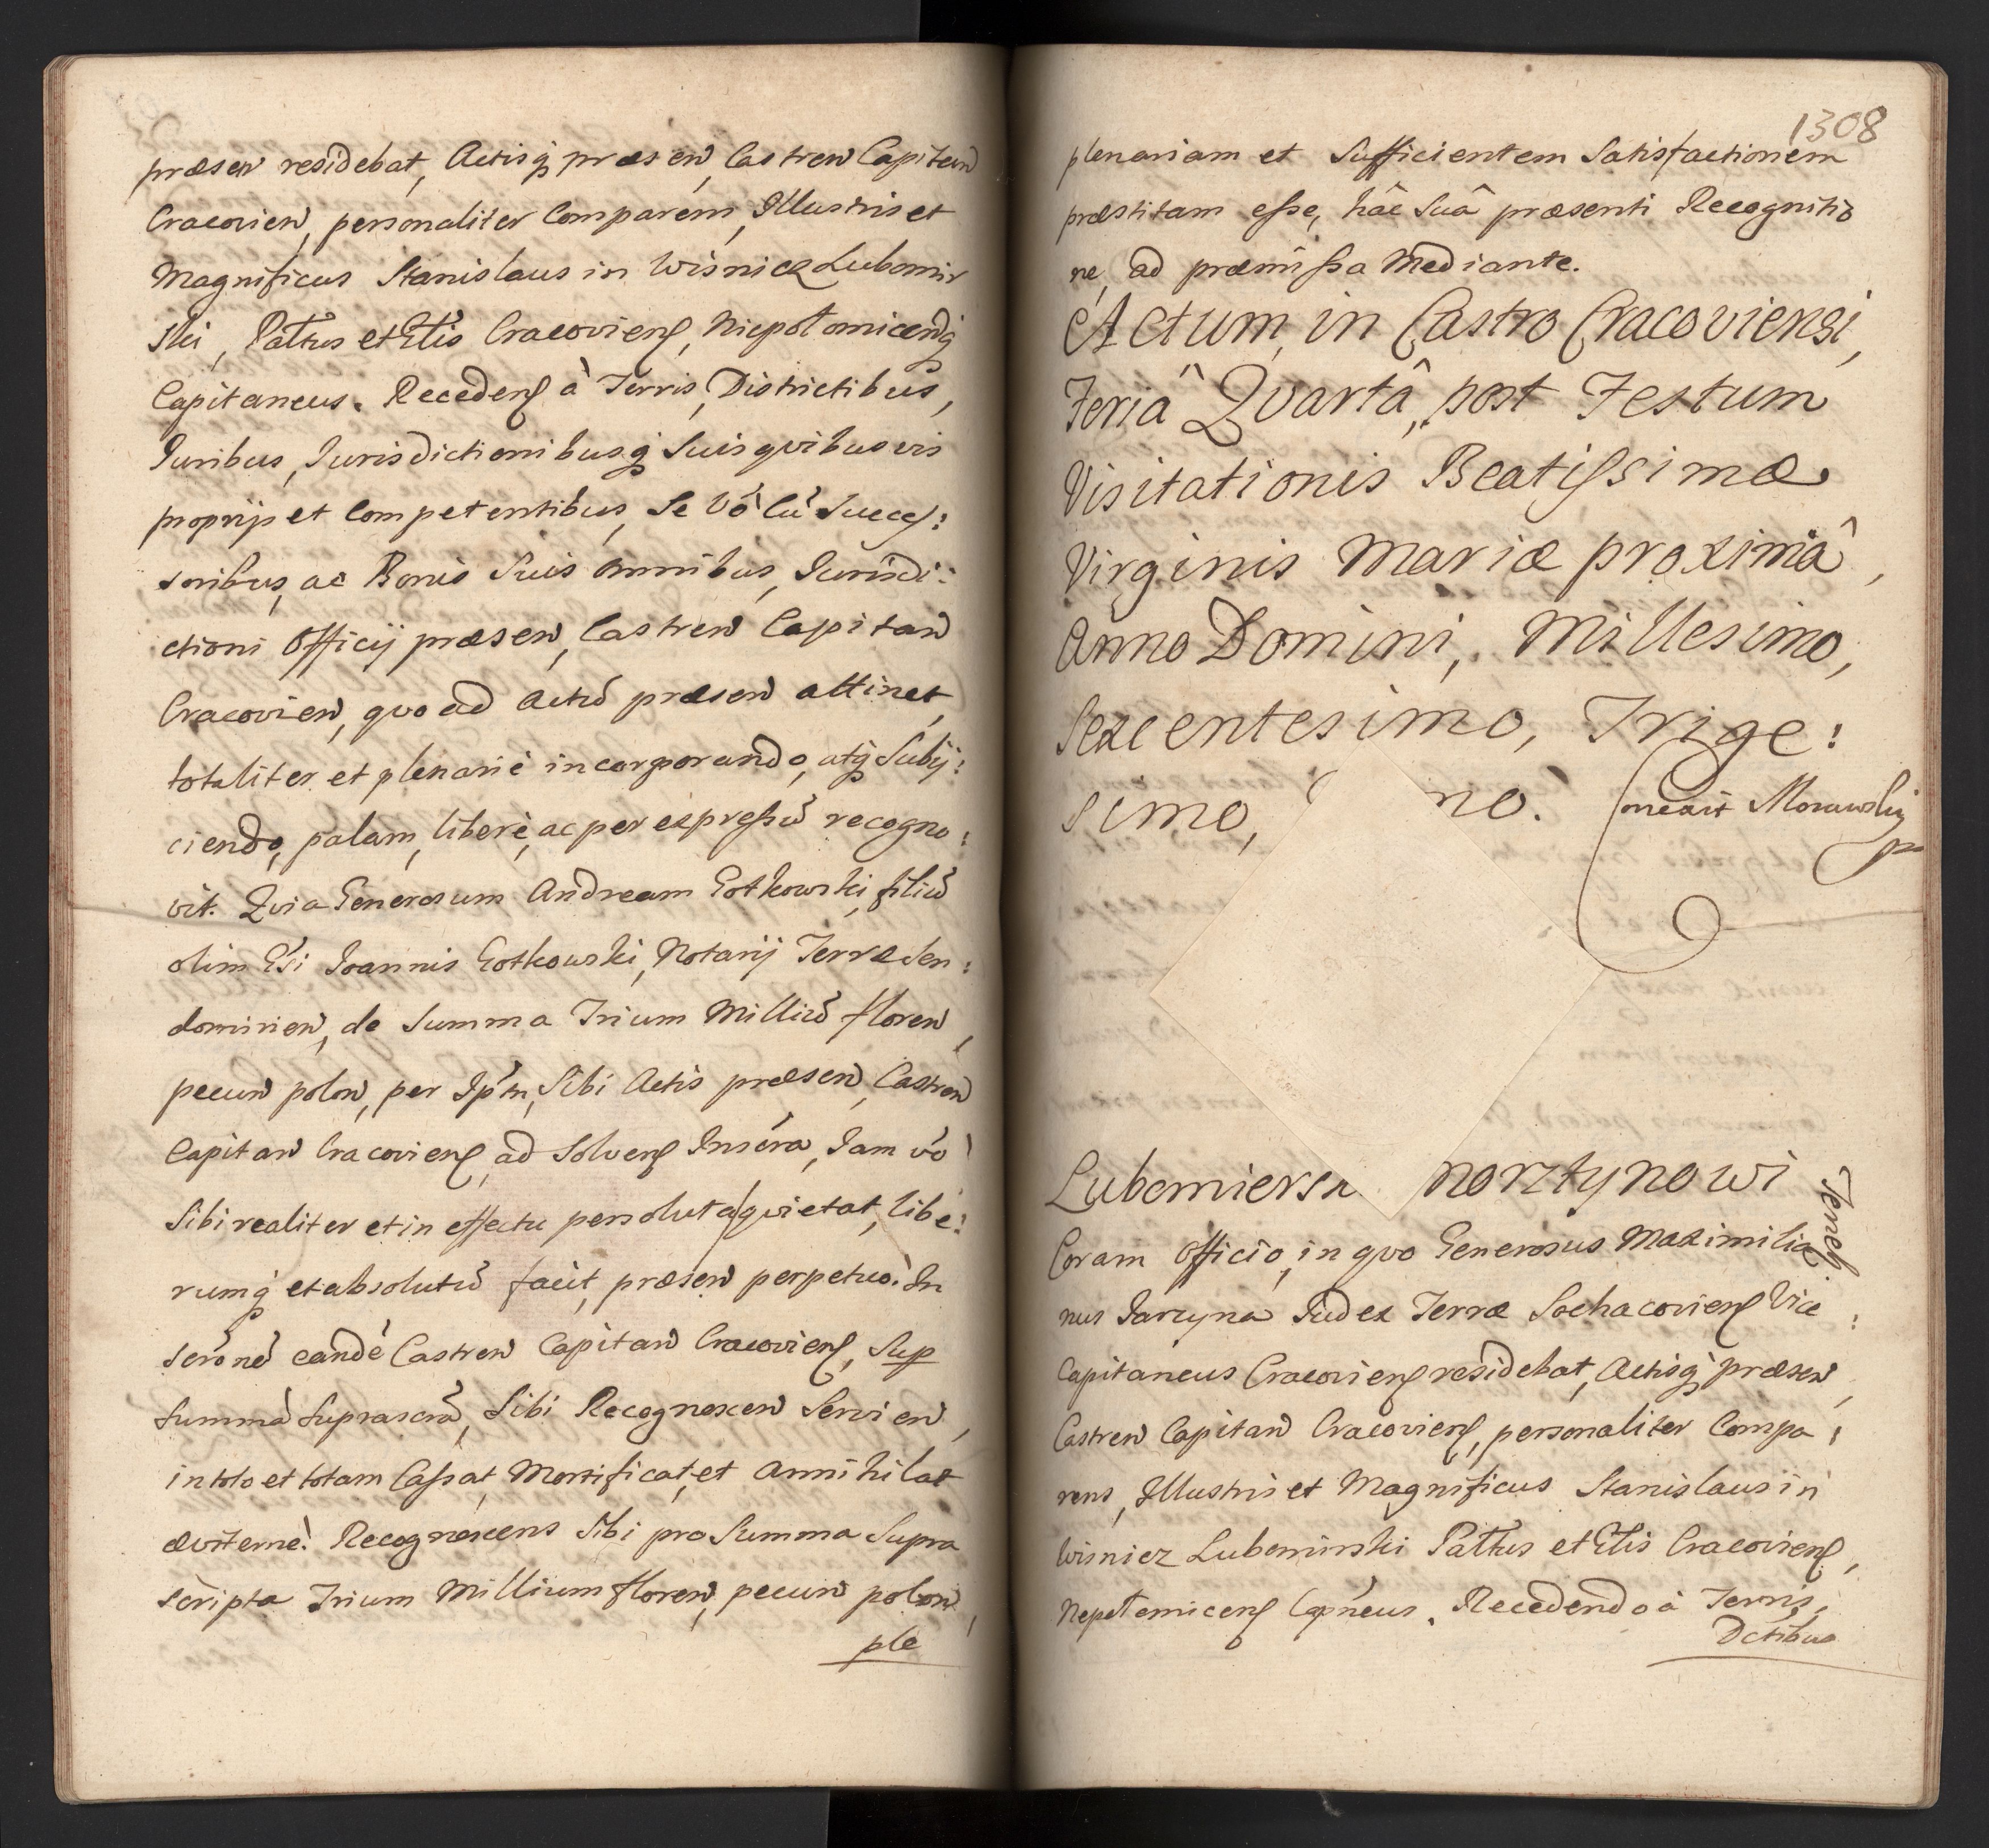 præsen residebat, Actisq præsen, Castren Capitan
Cracovien, personaliter Comparen, Illustris et
Magnificus Stanislaus in Wisnicz Lubomir
ski, Pattus et Gtis Cracovien, Niepołomicenq
Capitaneus. Recedens à Terris, Districtibus,
Iuribus, Iurisdictionibusq Suis quibusvis
proprijs et Competentibus, Se vo cu Succes:
soribus, ac Bonis Suis omnibus, Iurisdi:
ctioni Officij præsen, Castren Capitan
Cracovien, quo ad actu præsen attinet,
totaliter et plenariè incorporando, atq Subij:
ciendo, palam, liberè, ac per expressu recogno:
vit. Quia Generosum Andream Gotkowski, filiu
olim Gsi Ioannis Gotkowski, Notarij Terræ Sen:
domirien, de Summa Trium Milliu floren,
pecun polon, per Ipm, Sibi Actis præsen, Castren
Capitan Cracovien, ad Solven Inscra, Iam vo
Sibi realiter et in effectu persoluta quietat, libe:
rumq et absolutu facit, præsen perpetuo. In
scrõne eandè Castren Capitan Cracovien, Sup
Summa Suprascra, Sibi Recognoscen Servien,
in toto et totam Cassat, Mortificat, et Annihilat
æviternè. Recognoscens Sibi pro Summa Supra
scripta Trium Millium floren, pecun polon,
ple
1308
plenariam et Sufficientem Satisfactionem
præstitam esse, hâc Suâ præsenti Recognitio
ne, ad præmissa Mediante.
Actum, in Castro Cracoviensi,
Feriâ Qvartâ, post Festum
Visitationis Beatissimæ
Virginis Mariæ proximâ,
Anno Domini, Millesimo,
Sexcentesimo, Trige:
simo, no.
Lubomiersk norztynowi
Coram Officio, in quo Generosus Maximilia
nus Iarzyna Iudex Terræ Sochacovien Vice:
Capitaneus Cracovien residebat, Actisq præsen,
Castren Capitan Cracovien, personaliter Compa:
rens, Illustris et Magnificus Stanislaus in
Wisnicz Lubomirski Pattus et Gtis Cracovien,
Nepołomicen Capneus. Recedendo à Terris,
Dctibus